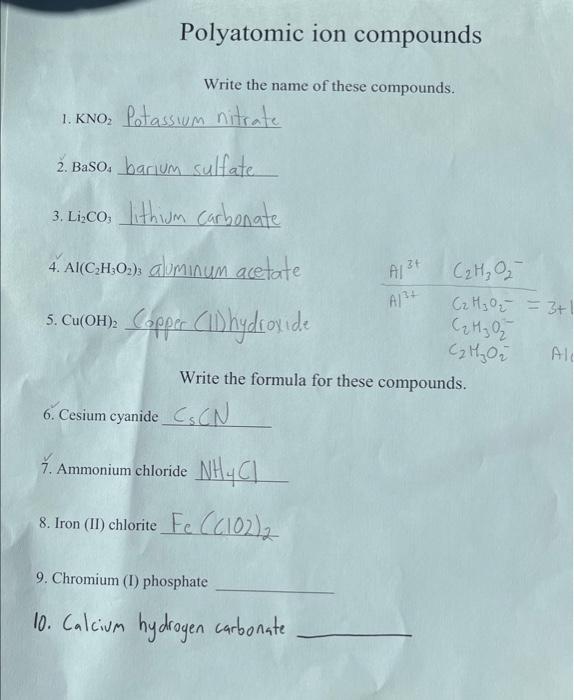 Polyatomic ion compounds
Write the name of these compounds.
1. KNO₂ Potassium nitrate
2. BaSO₄ barium sulfate
3. Li₂CO₃ lithium carbonate
4. Al(C₂H₃O₂)₃ aluminum acetate
Al³⁺ C₂H₃O₂⁻
Al³⁺ C₂H₃O₂⁻ = 3+
C₂H₃O₂⁻
C₂H₃O₂⁻ Al
5. Cu(OH)₂ Copper (II) hydroxide
Write the formula for these compounds.
6. Cesium cyanide CsCN
7. Ammonium chloride NH4Cl
8. Iron (II) chlorite Fe(ClO2)₂
9. Chromium (I) phosphate
10. Calcium hydrogen carbonate